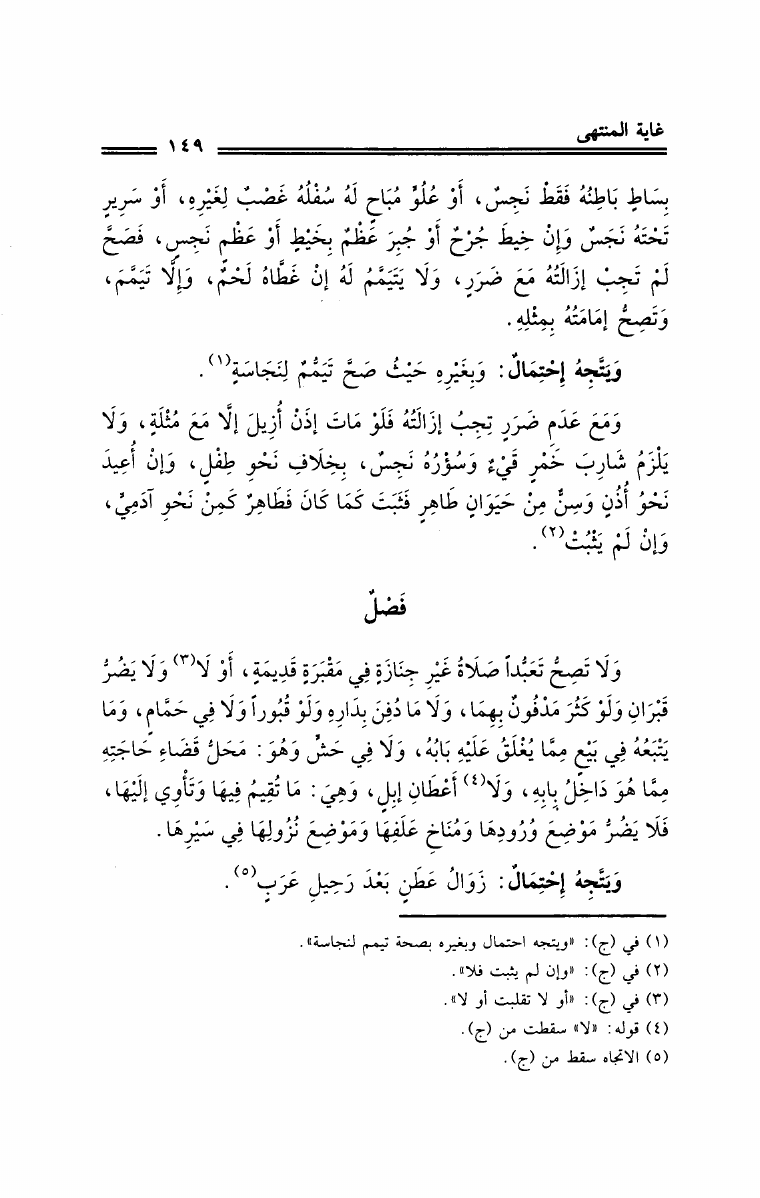 غاية المنتهى
١٤٩
بِسَاطٍ بَاطِنُهُ فَقَطْ نَجِسٌ، أَوْ عُلُوٍّ مُبَاحٍ لَهُ سُفْلُهُ غَصْبٌ لِغَيْرِهِ، أَوْ سَرِيرٍ
تَحْتَهُ نَجَسٌ وَإِنْ خِيطَ جُرْحٌ أَوْ جُبِرَ عَظْمٌ بِخَيْطٍ أَوْ عَظْمٍ نَجِسٍ، فَصَحَّ
لَمْ تَجِبْ إزَالَتُهُ مَعَ ضَرَرٍ، وَلَا يَتَيَمَّمُ لَهُ إنْ غَطَّاهُ لَحْمٌ، وَإِلَّا تَيَمَّمَ،
وَتَصِحُّ إمَامَتُهُ بِمِثْلِهِ.
وَيَتَّجِهُ إحْتِمَالٌ: وَبِغَيْرِهِ حَيْثُ صَحَّ تَيَمُّمٌ لِنَجَاسَةٍ(١).
وَمَعَ عَدَمِ ضَرَرٍ تَجِبُ إزَالَتُهُ فَلَوْ مَاتَ إذَنْ أُزِيلَ إلَّا مَعَ مُثْلَةٍ، وَلَا
يَلْزَمُ شَارِبَ خَمْرٍ قَيْءٌ وَسُؤْرُهُ نَجِسٌ، بِخِلَافِ نَحْوِ طِفْلٍ، وَإِنْ أُعِيدَ
نَحْوُ أُذُنٍ وَسِنٍّ مِنْ حَيَوَانٍ طَاهِرٍ فَثَبَتَ كَمَا كَانَ فَطَاهِرٌ كَمِنْ نَحْوِ آدَمِيٍّ،
وَإِنْ لَمْ يَثْبُتْ(٢).
فَصْلٌ
وَلَا تَصِحُّ تَعَبُّداً صَلَاةُ غَيْرِ جِنَازَةٍ فِي مَقْبَرَةٍ قَدِيمَةٍ، أَوْ لَا(٣) وَلَا يَضُرُّ
قَبْرَانِ وَلَوْ كَثُرَ مَدْفُونٌ بِهِمَا، وَلَا مَا دُفِنَ بِدَارِهِ وَلَوْ قُبُوراً وَلَا فِي حَمَّامٍ، وَمَا
يَتْبَعُهُ فِي بَيْعٍ مِمَّا يُغْلَقُ عَلَيْهِ بَابُهُ، وَلَا فِي حَشٍّ وَهُوَ: مَحَلُّ قَضَاءِ حَاجَتِهِ
مِمَّا هُوَ دَاخِلُ بِابِهِ، وَلَا(٤) أَعْطَانِ إبِلٍ، وَهِيَ: مَا تُقِيمُ فِيهَا وَتَأْوِي إلَيْهَا،
فَلَا يَضُرُّ مَوْضِعَ وُرُودِهَا وَمُنَاخَ عَلَفِهَا وَمَوْضِعَ نُزُولِهَا فِي سَيْرِهَا.
وَيَتَّجِهُ إحْتِمَالٌ: زَوَالُ عَطَنٍ بَعْدَ رَحِيلِ عَرَبٍ(٥).
(١) في (ج): «ويتجه احتمال وبغيره بصحة تيمم لنجاسة».
(٢) في (ج): «وإن لم يثبت فلا».
(٣) في (ج): «أو لا تقلبت أو لا».
(٤) قوله: «لا» سقطت من (ج).
(٥) الاتجاه سقط من (ج).